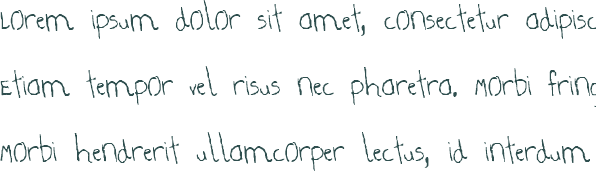 Lorem ipsum dolor sit amet, consectetur adipisc
Etiam tempor vel risus nec pharetra. Morbi fring
Morbi hendrerit ullamcorper lectus, id interdum